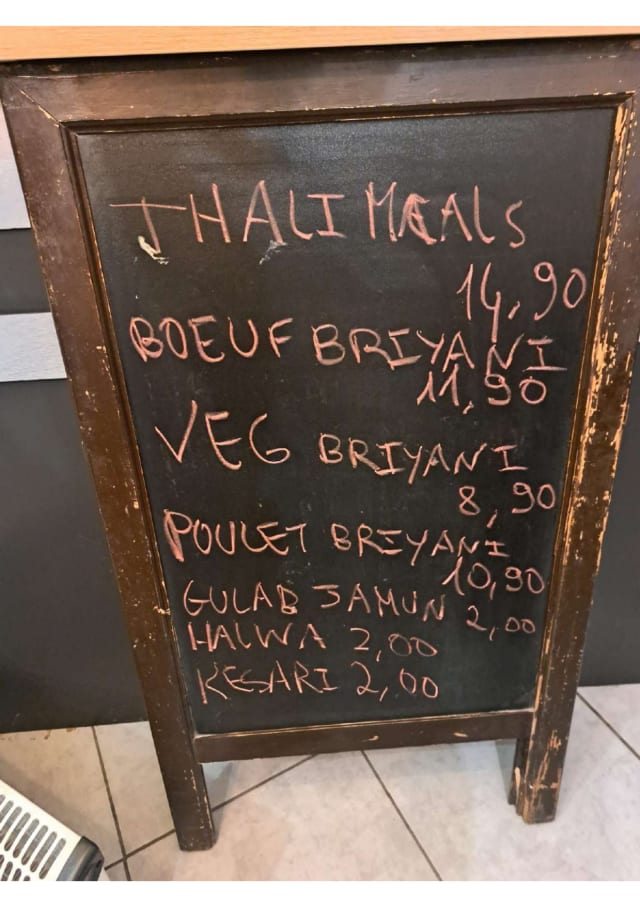 THALI MEALS
14,90
BOEUF BRIYANI
11,90
VEG BRIYANI
8,90
POULET BRIYANI
10,90
GULAB JAMUN 2,00
HALWA 2,00
KESARI 2,00